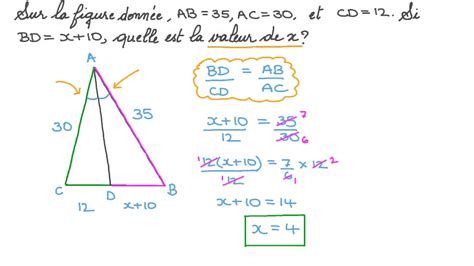 Sur la figure donnée, AB = 35, AC = 30, et CD = 12. Si
BD = x+10, quelle est la valeur de x?
A
30
35
C
D
B
12
x+10
BD/CD = AB/AC
x+10/12 = 35/30 7 6
1 12(x+10)/12 1 = 7/6 1 × 12 2
x+10 = 14
x = 4